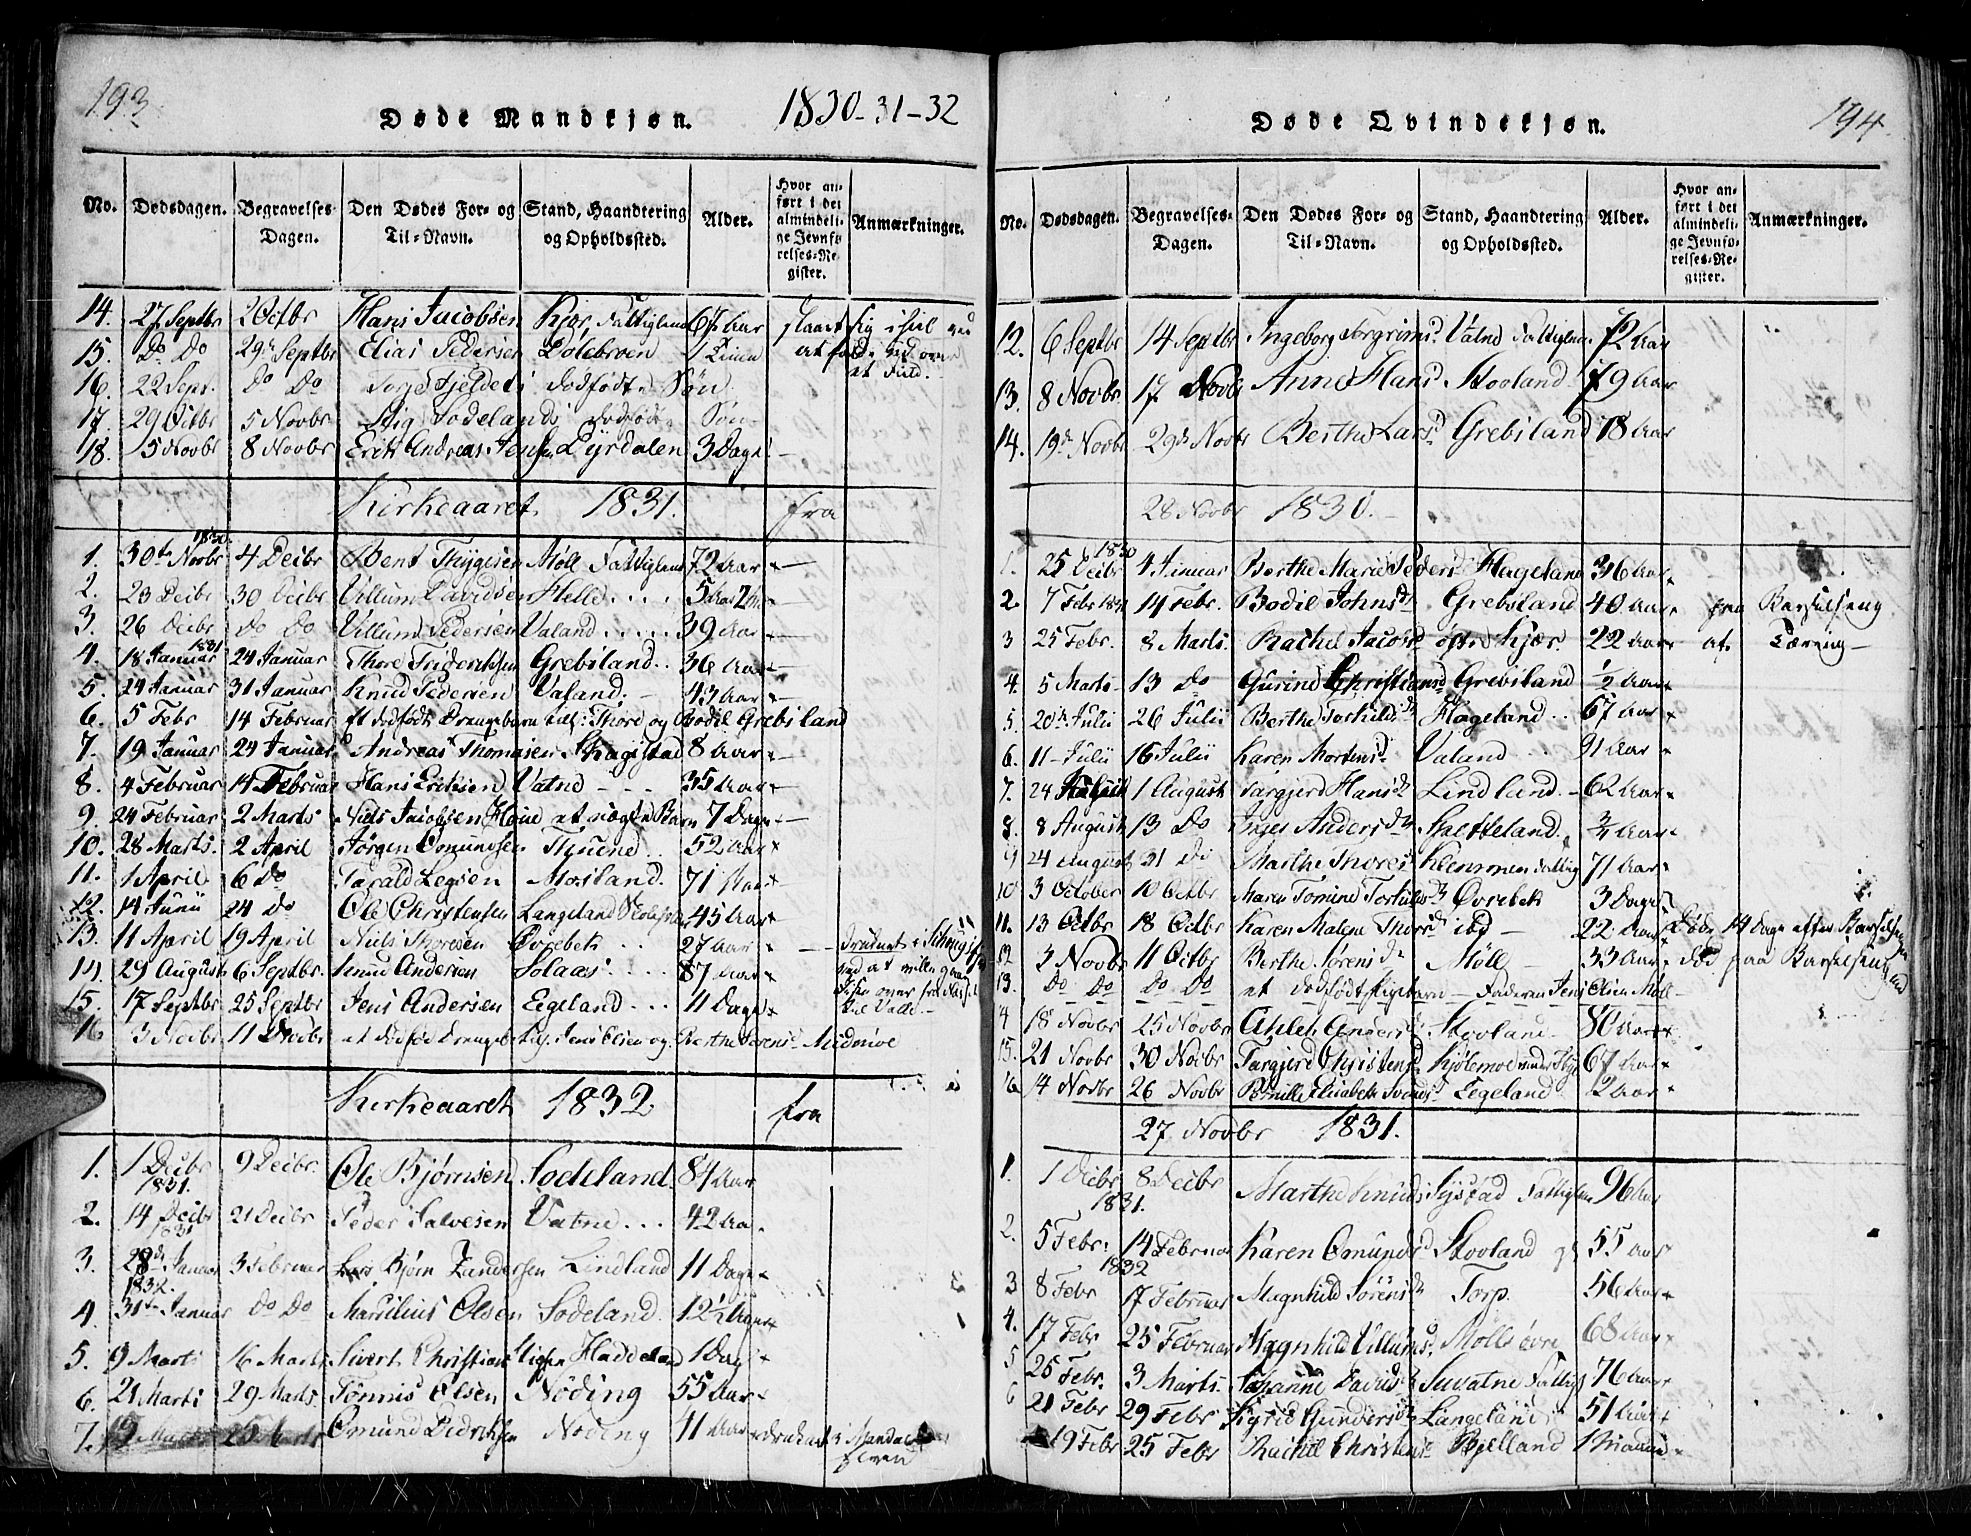 193.
Døde Mandkjøn.
1830-31-32
No.
Dødsdagen.
Begravelses-Dagen.
Den Dødes For- og Til-Navn.
Stand, Haandtering og Opholdssted.
Alder.
Hvor anført i det almindelige Jevnførelses-Register.
Anmærkninger.
14. 27 Septbr 2 Octbr Hans Jacobsen Aar
15. Do Do 29 Septbr Elias Pedersen
16. 22 Sept. Do Do dødfødt Søn
17. 29 Octbr 5 Novbr Stig Sodelands dødfødt Søn
18. 5 Novbr 8 Novbr Erik Andreas Jensen 3 Dage
Kirkeaaret 1831. fra
1. 30te Novbr 1830 4 Decbr Bent Thygesen Møll Fattiglem 72 Aar
2. 23 Decbr 30 Decbr Villum Davidsen Helle
3. 26 Decbr Do Do Villum Pedersen Valand 39 Aar
4. 18 Januar 1831 24 Januar Thore Friderichsen Grebsland 36 Aar
5. 24 Januar 31 Januar Knud Pedersen Valand 43 Aar
6. 5 Febr 14 Februar et dødfødt Drengebarn Thore og Bodil Grebsland
7. 19 Januar 24 Januar Andreas Thomasen Skagistad 8 Aar
8. 4 Februar 14 Februar Hans Eriksen Vatne 35 Aar
9. 24 Februar 2 Marts Niels Jacobsen et uægte Barn 7 Dage
10. 28 Marts. 2 April Jørgen Omundsen 52 Aar
11. 1 April 6 Do Tarald Mosland 71 Aar
12. 14 Junii 24 Do Ole Christensen Langeland 45 Aar
13. 11 April 19 April Niels Thoresen Øvrebek 27 Aar druknet
14. 29 August 6 Septbr. Knud Andersen Solaas 87 Aar
15. 17 Septbr 25 Septbr Jens Andersen Egeland 11 Dage
16. 3 Novbr 11 Novbr et dødfød Drengeb. Jens Olsen og Berthe Sørensd.
Kirkeaaret 1832 fra
1. 1 Decbr 1831. 9 Decbr. Ole Bjørnsen Sodeland 84 Aar
2. 14 Decbr 1831 21 Decbr Peder Salvesen Vatne 42 Aar
3. 28de Januar 1832. 3 Februar Bjørn Lindland 11 Dage
4. 31te Januar Do Do Marsilius Olsen Sodeland. 12½ Aar
5. 9 Marts 16 Marts Sivert Christian Haddeland 1 Dag
6. 21 Marts 29 Marts Tønnis Olsen Nøding 55 Aar
7. 19 Marts 25 Omund Didriksen Nøding 41 Aar druknet i Mandals elven
194.
Døde Qvindekjøn.
No.
Dødsdagen.
Begravelses-Dagen.
Den Dødes For- og Til-Navn.
Stand, Haandtering og Opholdssted.
Alder.
Hvor anført i det almindelige Jevnførelses-Register.
Anmærkninger.
12. 6 Septbr 14 Septbr Ingeborg Torgrimsd. Vatne Fattiglem 72 Aar
13. 8 Novbr 17 Novbr Anne Hansd. Skovland 79 Aar
14. 19de Novbr 29de Novbr Berthe Larsd. Grebsland 18 Aar
28 Novbr 1830.
1. 25 Decbr 1830 4 Januar Berthe Marie Pedersd. Hageland 36 Aar
2. 7 Febr 1831 14 Febr. Bodil Johnsd. Grebsland 40 Aar fra Barselseng
3 25 Febr. 8 Marts. Rachel Jacobsd. østre Kjær 22 Aar af Tæring
4. 5 Marts 13 Do Gurine Christiansd. Grebsland ½ Aar
5. 20de Julii 26 Julii Berthe Torkildsd. Hageland 67 Aar
6. 11 Julii 16 Julii Karen Mortensd. Valand 91 Aar
7. 24 1 August Targjerd Hansd. Lindland 62 Aar
8. 8 August 13 Do Andersd. ¾ Aar
9 24 August 31 Do Marthe Thoresd. 71 Aar
10 3 October 10 Octbr Maren Tomine Øvrebek 3 Dage
11. 13 Octbr 18 Octbr Karen Malene Thorsd. ibd 22 Aar Døde 14 Dage efter Barselseng
12 3 Novbr 11 Octbr Berthe Sørensd. Møll 33 Aar død paa Barselseng
13. Do Do Do Do et dødfødt Pigebarn Faderen Jens Olsen Møll
14 18 Novbr 25 Novbr Andersd. Skovland 80 Aar
15. 21 Novbr 30 Novbr Targjerd Christensd. 67 Aar
16 14 Novbr 26 Novbr Pernille Elisabeth Egeland 2 Aar
27 Novbr 1831.
1. 1 Decbr 1831. 8 Decbr Marthe Knudsd. Fattiglem 96 Aar
2. 5 Febr. 1832 14 Februar Karen Omundsd. Skovland 55 Aar
3 8 Febr 17 Februar Magnhild Sørensd. Torp. 56 Aar
4. 17 Febr 25 Februar Magnhild Villumsd. Mølle øvre 68 Aar
5 25 Febr. 3 Marts Johanne Davidsd. 76 Aar
6 21 Febr 29 Febr Gundersd. Langeland 51 Aar
19 Febr 25 Febr Rachel Christensd. Bjelland 1 Maaned